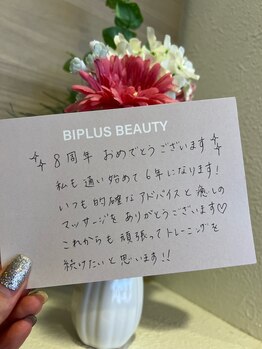 BIPLUS BEAUTY
8周年 おめでとうございます
私も通い始めて6年になります！
いつも的確なアドバイスと癒しの
マッサージをありがとうございます♡
これからも頑張ってトレーニングを
続けたいと思います！！